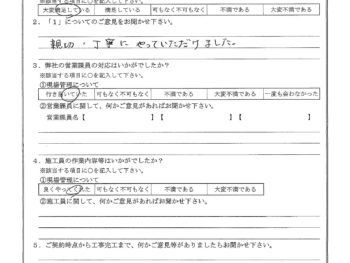 ※該当する項目に○を記入して下さい。
大変満足している 満足している 可もなく不可もなく 不満である 大変不満である
2．「1」についてのご意見をお聞かせ下さい。
親切・丁寧にやっていただけました。
3．弊社の営業職員の対応はいかがでしたか？
※該当する項目に○を記入して下さい。
①現場管理について
行き届いていた 可もなく不可もなく 不満である 大変不満である 一度も会わなかった
②営業職員に関して、何かご意見があればお聞かせ下さい。
営業職員名【 】【 】【 】
4．施工員の作業内容等はいかがでしたか？
※該当する項目に○を記入して下さい。
①現場管理について
良くやってくれた 可もなく不可もなく 不満である 大変不満である
②施工員に関して、何かご意見があればお聞かせ下さい。
5．ご契約時点から工事完工まで、何かご意見等がありましたらお聞かせ下さい。